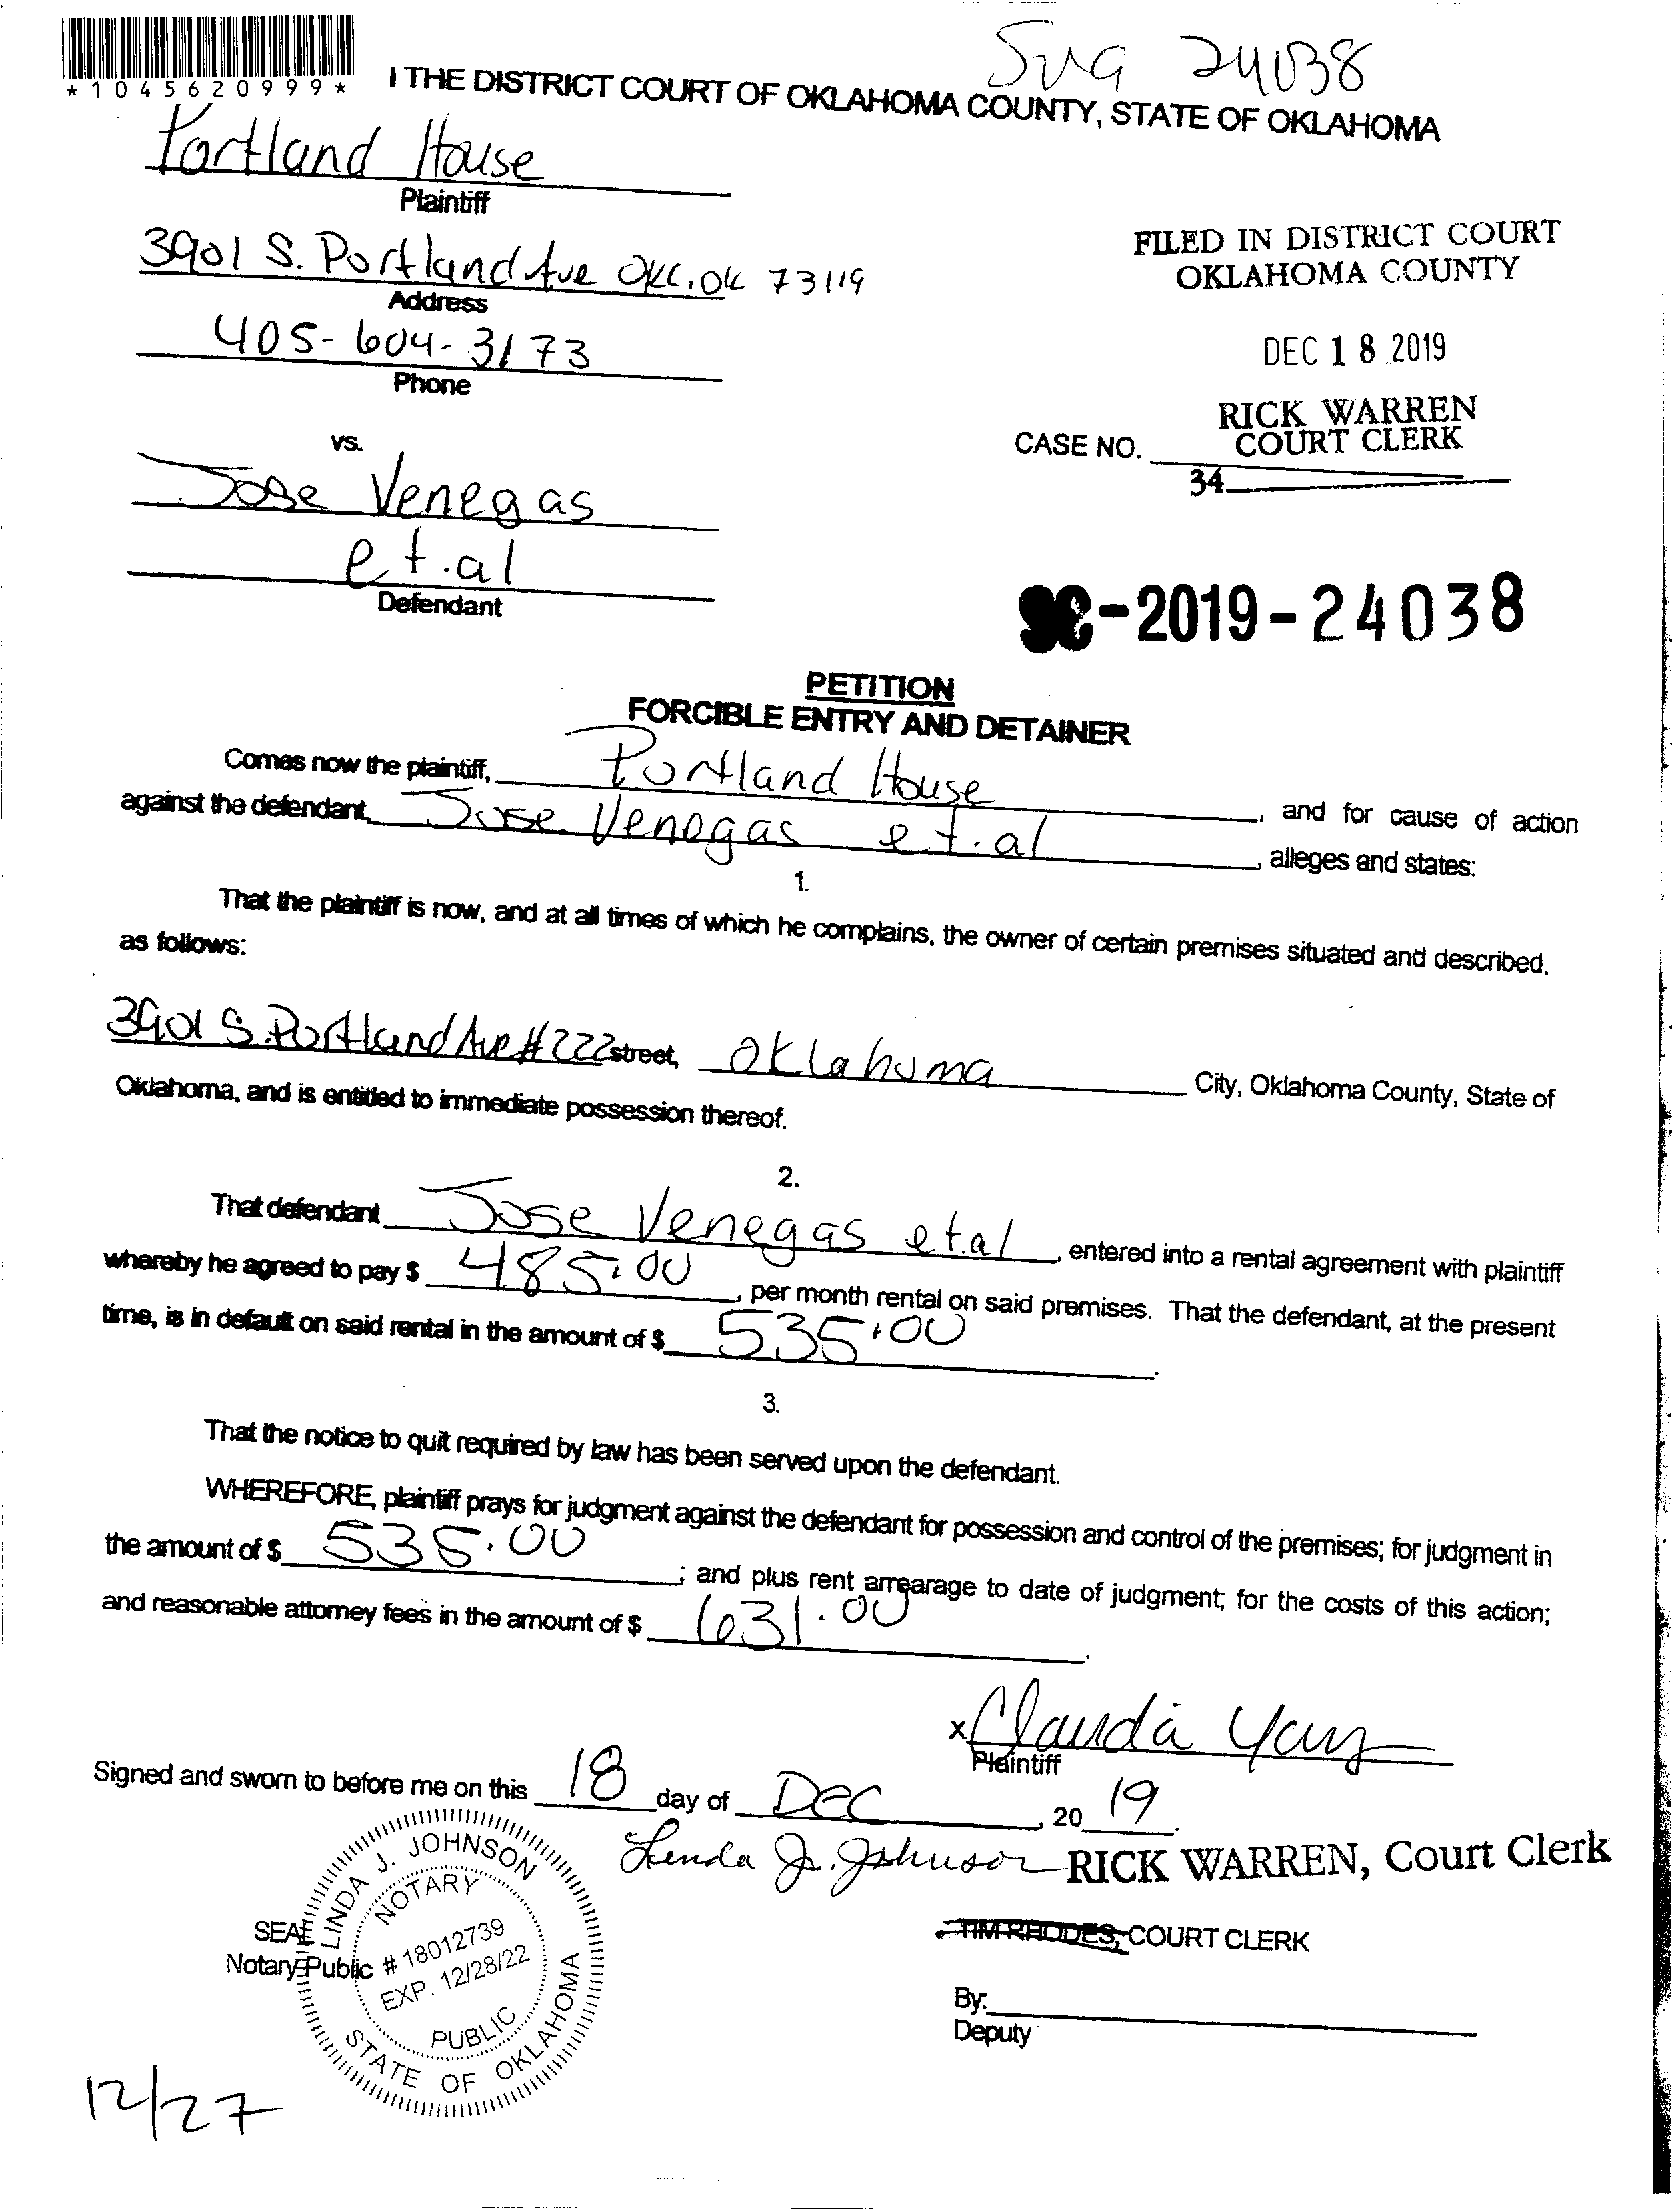 SVG 24038
*1045620999*
I THE DISTRICT COURT OF OKLAHOMA COUNTY, STATE OF OKLAHOMA
Portland House
Plaintiff
3901 S. Portland Ave OKC, OK 73119
Address
405-604-3173
Phone
FILED IN DISTRICT COURT
OKLAHOMA COUNTY
DEC 18 2019
RICK WARREN
COURT CLERK
34
vs.
CASE NO.
Jose Venegas
et.al
Defendant
SC-2019-24038
PETITION
FORCIBLE ENTRY AND DETAINER
Comes now the plaintiff, Portland House , and for cause of action
against the defendant, Jose Venegas et.al , alleges and states:
1.
That the plaintiff is now, and at all times of which he complains, the owner of certain premises situated and described.
as follows:
3901 S. Portland Ave #222 street, Oklahoma City, Oklahoma County, State of
Oklahoma, and is entitled to immediate possession thereof.
2.
That defendant Jose Venegas et.al , entered into a rental agreement with plaintiff
whereby he agreed to pay $ 485.00 , per month rental on said premises. That the defendant, at the present
time, is in default on said rental in the amount of $ 535.00 .
3.
That the notice to quit required by law has been served upon the defendant.
WHEREFORE, plaintiff prays for judgment against the defendant for possession and control of the premises; for judgment in
the amount of $ 535.00 ; and plus rent arrearage to date of judgment; for the costs of this action;
and reasonable attorney fees in the amount of $ 631.00 .
x Claudia
Plaintiff
Signed and sworn to before me on this 18 day of DEC , 20 19 .
Linda J. Johnson RICK WARREN, Court Clerk
TIM RHODES, COURT CLERK
SEAL
Notary Public
LINDA J. JOHNSON
NOTARY
# 18012739
EXP. 12/28/22
PUBLIC
STATE OF OKLAHOMA
By:
Deputy
12/27